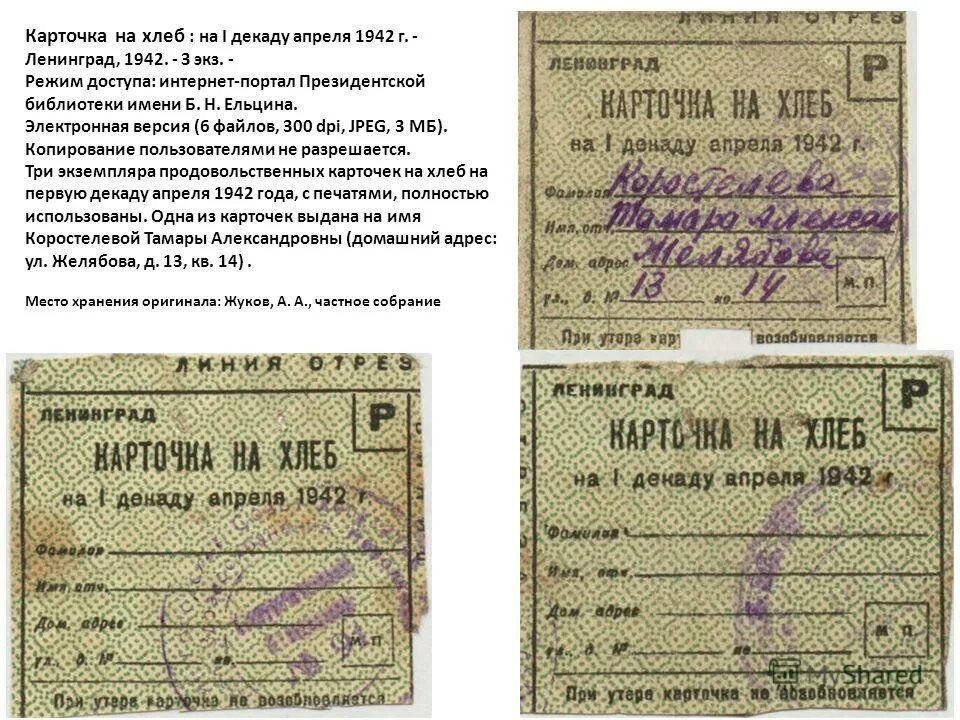 Карточка на хлеб : на I декаду апреля 1942 г. -
Ленинград, 1942. - 3 экз. -
Режим доступа: интернет-портал Президентской
библиотеки имени Б. Н. Ельцина.
Электронная версия (6 файлов, 300 dpi, JPEG, 3 МБ).
Копирование пользователями не разрешается.
Три экземпляра продовольственных карточек на хлеб на
первую декаду апреля 1942 года, с печатями, полностью
использованы. Одна из карточек выдана на имя
Коростелевой Тамары Александровны (домашний адрес:
ул. Желябова, д. 13, кв. 14) .
Место хранения оригинала: Жуков, А. А., частное собрание
ЛИНИЯ ОТРЕЗ
ЛЕНИНГРАД
Р
КАРТОЧКА НА ХЛЕБ
на I декаду апреля 1942 г.
Фамилия Коростелева
Имя, отч. Тамара Алексан
Дом. адрес Желябова
ул., д. № 13 кв. 14
М. П.
При утере кар возобновляется
ЛИНИЯ ОТРЕЗ
ЛЕНИНГРАД
Р
КАРТОЧКА НА ХЛЕБ
на I декаду апреля 1942 г
Фамилия
Имя, отч.
Дом. адрес
ул., д. № кв.
М П.
При утере карточка не возобновляется
ЛЕНИНГРАД
Р
КАРТОЧКА НА ХЛЕБ
на I декаду апреля 1942 г.
Фамилия
Имя, отч.
Дом. адрес
ул., д. № кв.
М П.
При утере карточка не возобновляется
MyShared